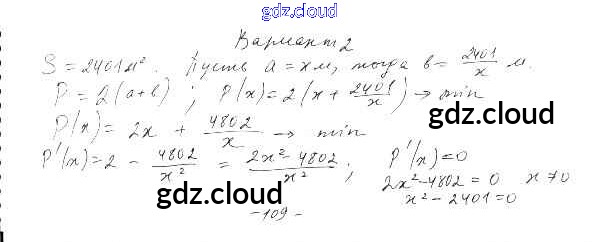 gdz.cloud
Вариант 2
S = 2401 м². Пусть a = x м, тогда b = 2401/x м.
P = 2(a+b) ; P(x) = 2(x + 2401/x) → min
gdz.cloud
P(x) = 2x + 4802/x → min
P'(x) = 2 - 4802/x² = (2x² - 4802)/x² ; P'(x) = 0
gdz.cloud
2x² - 4802 = 0 x ≠ 0
x² - 2401 = 0
gdz.cloud
- 109 -